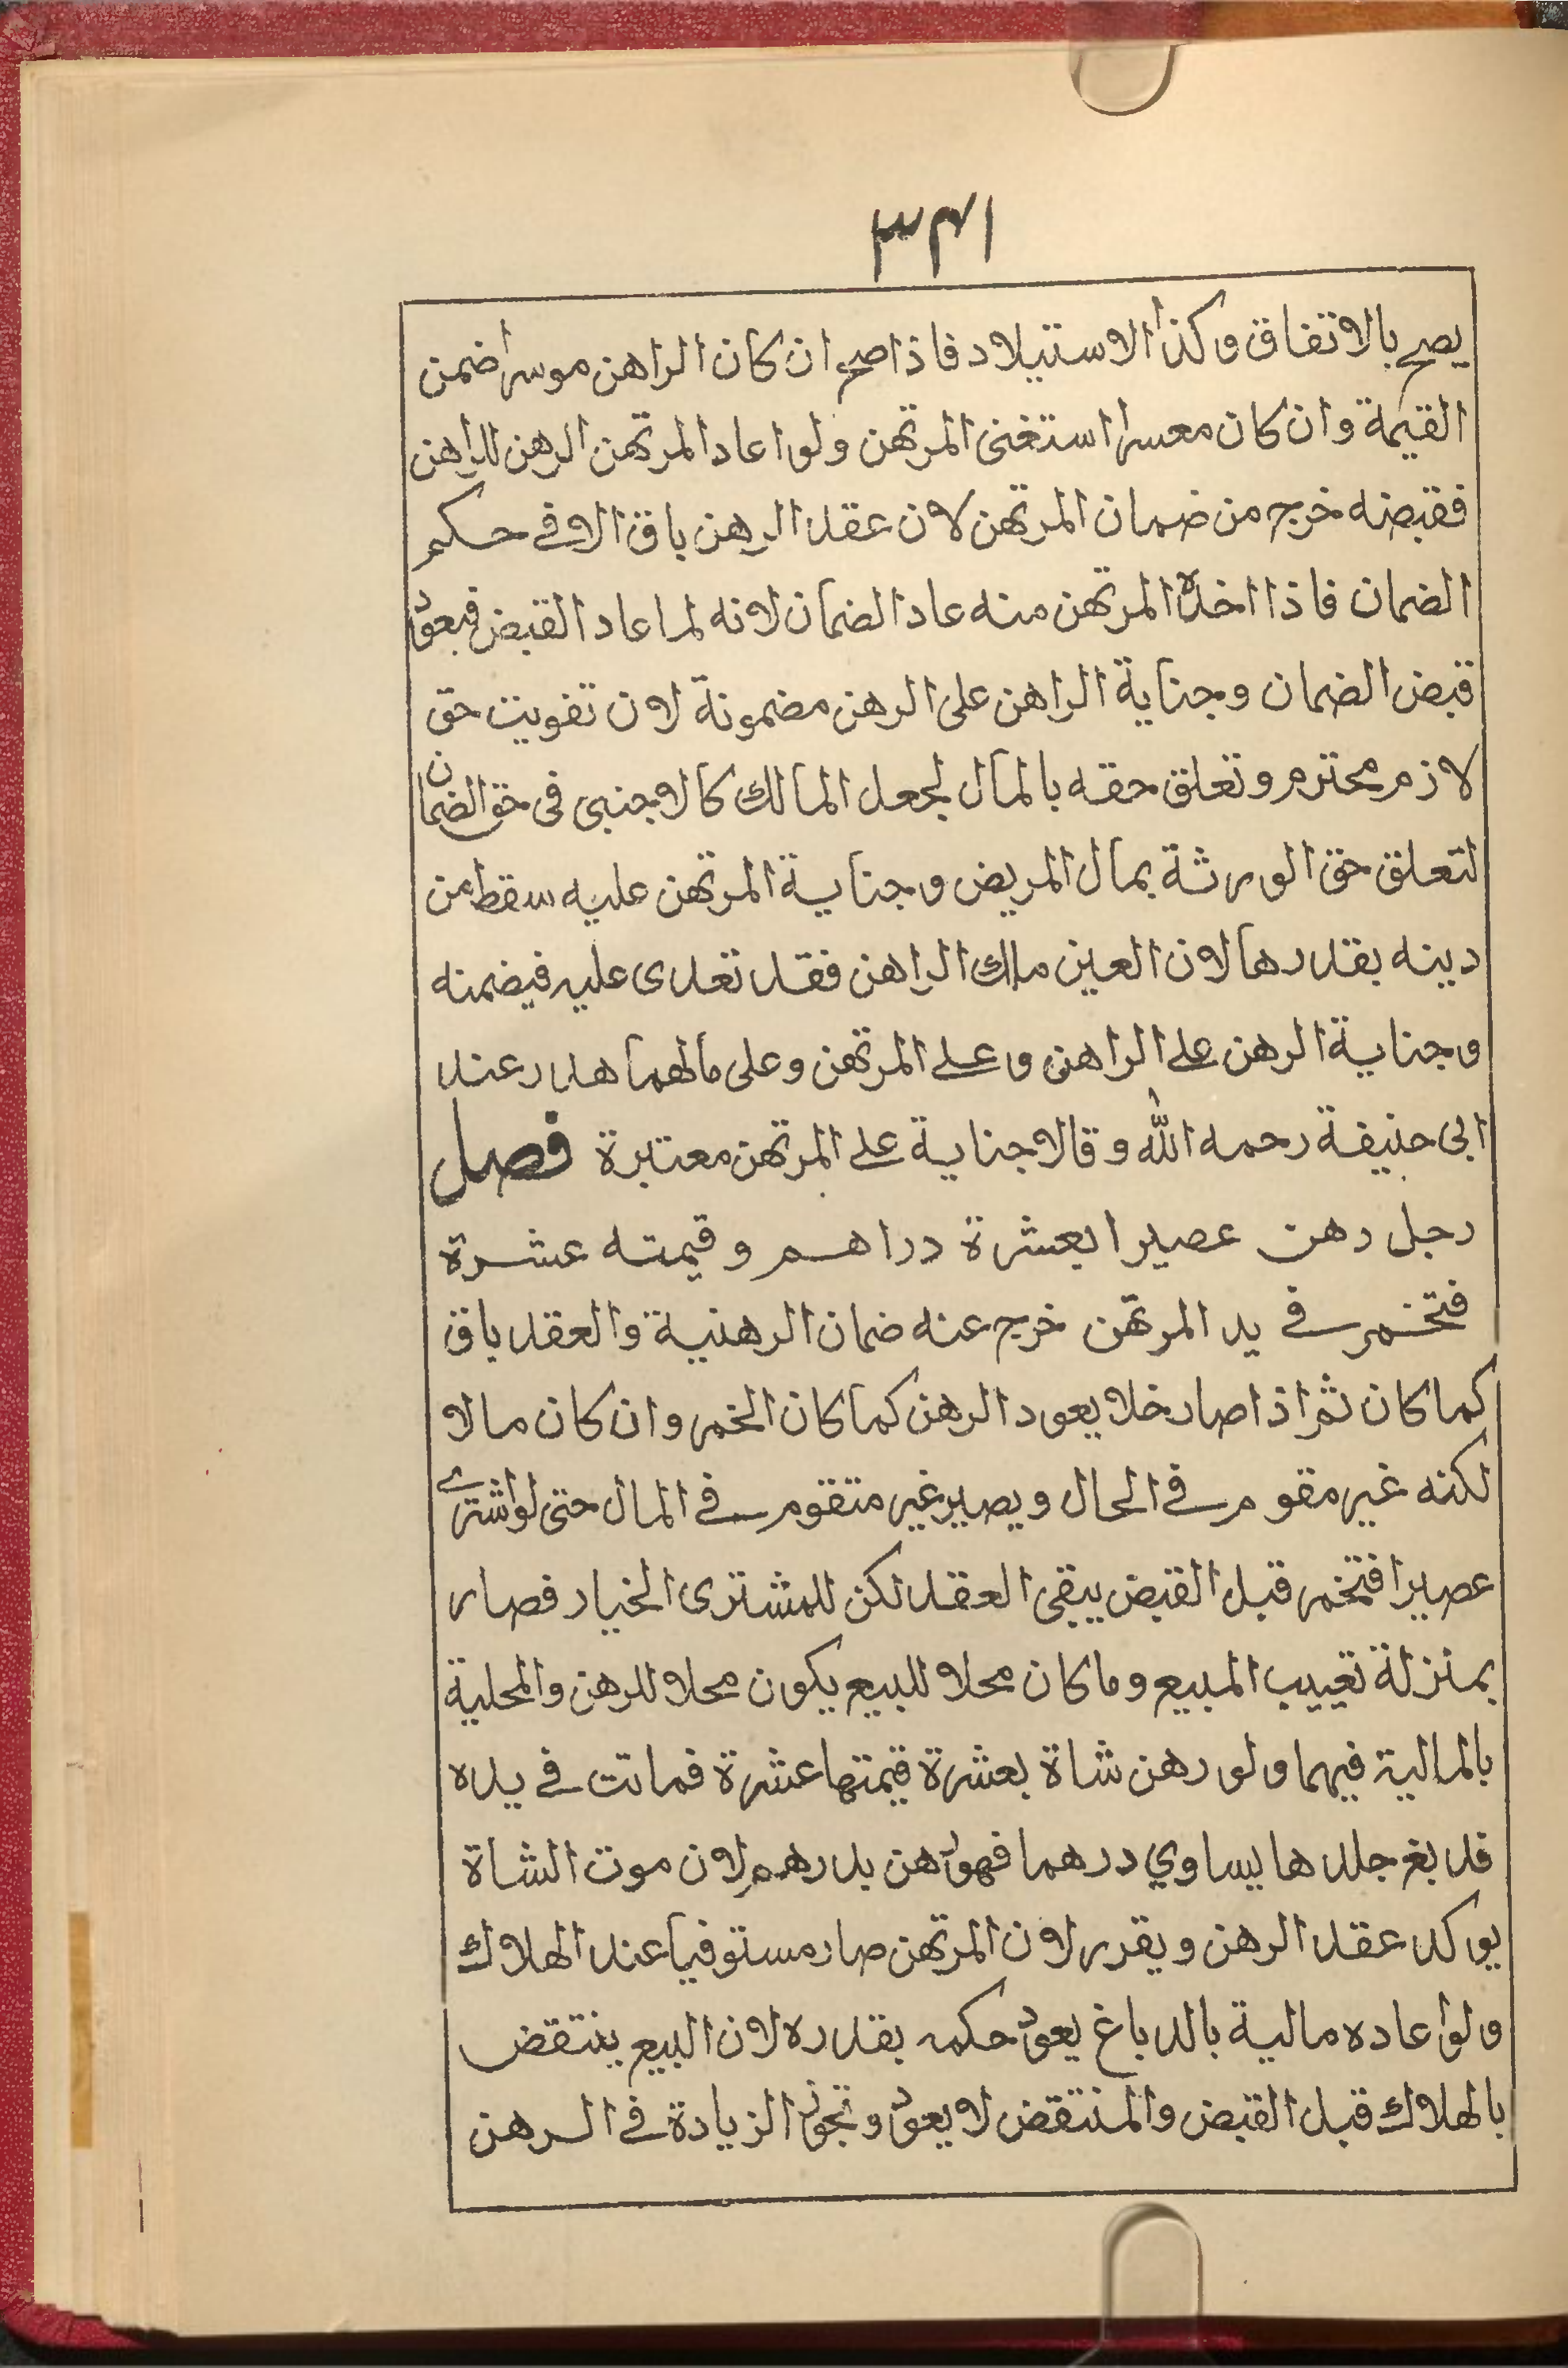 ٣٤١
يصح بالاتفاق وكذا الاستيلاد فاذا صح ان كان الراهن موسرا ضمن
القيمة وان كان معسرا استغنى المرتهن ولو اعاد المرتهن الرهن للراهن
فقبضه خرج من ضمان المرتهن لان عقد الرهن باق الا في حكم
الضمان فاذا اخذه المرتهن منه عاد الضمان لانه لما عاد القبض فيعود
قبض الضمان وجناية الراهن على الرهن مضمونة لان تفويت حق
لازم محترم وتعلق حقه بالمال لجعل المالك كالاجنبي فى حق الضمان
لتعلق حق الورثة بمال المريض وجناية المرتهن عليه سقط من
دينه بقدرها لان العين ملك الراهن فقد تعدى عليه فيضمنه
وجناية الرهن على الراهن وعلى المرتهن وعلى مالهما هدر عند
ابى حنيفة رحمه الله وقالا جناية على المرتهن معتبرة فصل
رجل رهن عصيرا بعشرة دراهم وقيمته عشرة
فتخمر في يد المرتهن خرج عنه ضمان الرهنية والعقد باق
كما كان ثم اذا صار خلا يعود الرهن كما كان الخمر وان كان مالا
لكنه غير مقوم في الحال ويصير غير متقوم في المال حتى لو اشترى
عصيرا فتخمر قبل القبض يبقى العقد لكن للمشترى الخيار فصار
بمنزلة تعييب المبيع وما كان محلا للبيع يكون محلا للرهن والمحلية
بالمالية فيهما ولو رهن شاة بعشرة قيمتها عشرة فماتت في يده
فدبغ جلدها يساوي درهما فهو رهن بدرهم لان موت الشاة
يوكد عقد الرهن ويقرر لان المرتهن صار مستوفيا عند الهلاك
ولو اعاده مالية بالدباغ يعود حكمه بقدره لان البيع ينتقض
بالهلاك قبل القبض والمنتقض لا يعود وتجوز الزيادة في الرهن